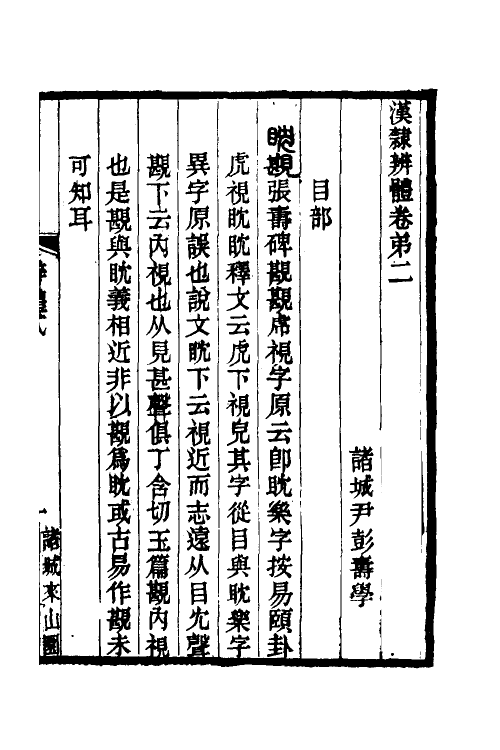 漢隸辨體卷弟二
諸城尹彭壽學
目部
眈覴張壽碑覴覴虎視字原云卽眈樂字按易頤卦
虎視眈眈釋文云虎下視皃其字從目與眈樂字
異字原誤也說文眈下云視近而志遠从目冘聲
覴下云內視也从見甚聲俱丁含切玉篇覴內視
也是覴與眈義相近非以覴爲眈或古易作覴未
可知耳
一 諸城來山園